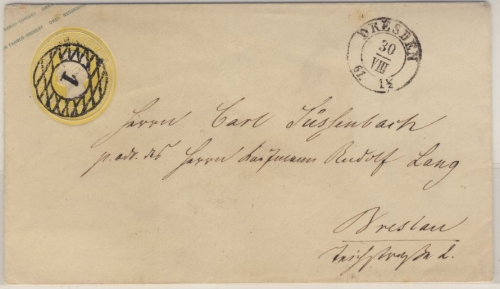 1
DRESDEN
30
VIII
61. 1½
Herrn Carl Süssenbach
p. adr. des Herrn Kaufmann Rudolf Lang
Breslau
Teichstraße 2.